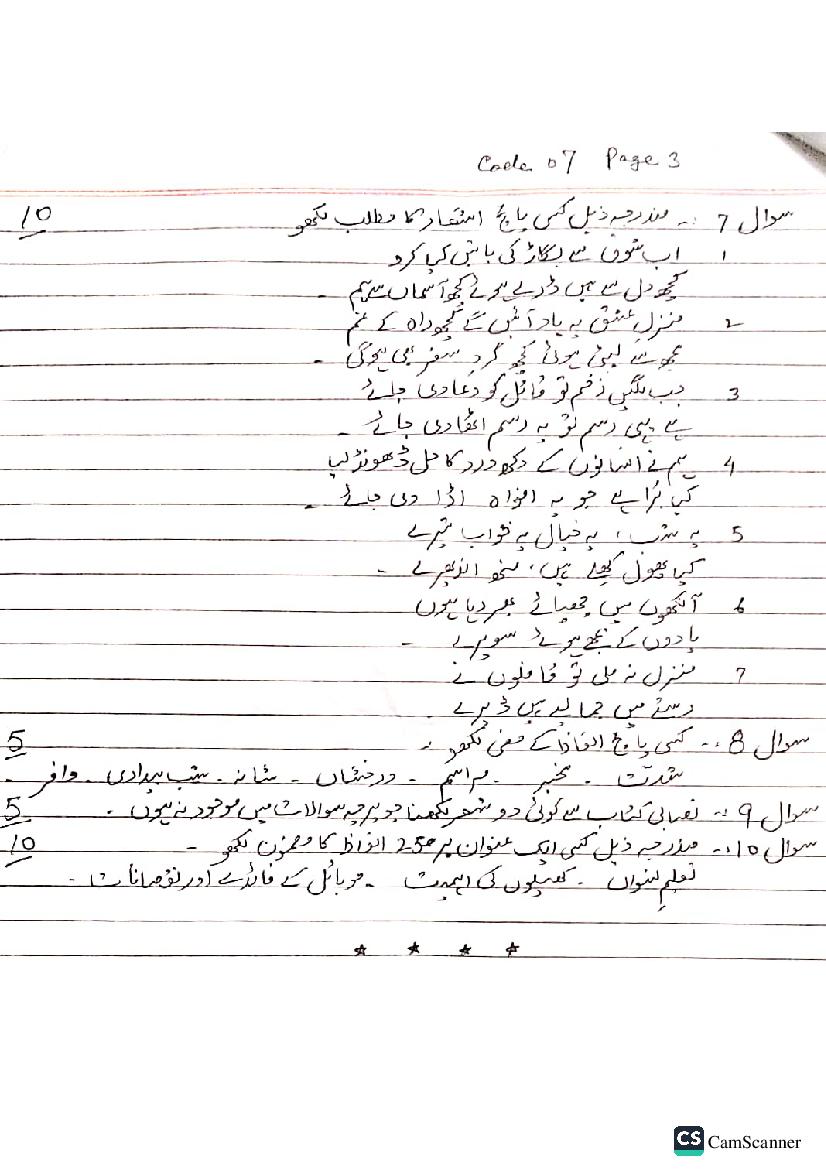 Code 07 Page 3
سوال 7 :۔ مندرجہ ذیل کسی پانچ اشعار کا مطلب لکھو 10
1 اب شوق سے بگاڑ کی باتیں کیا کرو
کچھ دل سے ہیں ڈرے ہوئے کچھ آسماں سے ہم ۔
2 منزلِ عشق پہ یاد آئیں گے کچھ راہ کے غم
مجھ سے لپٹی ہوئی کچھ گردِ سفر بھی ہوگی ۔
3 جب لگیں زخم تو قاتل کو دعا دی جائے
ہے یہی رسم تو یہ رسم اٹھا دی جائے ۔
4 ہم نے انسانوں کے دکھ درد کا حل ڈھونڈ لیا
کیا بُرا ہے جو یہ افواہ اڑا دی جائے ۔
5 یہ شب ، یہ خیال یہ خواب تیرے
کیا پھول کھلے ہیں، منھ اندھیرے ۔
6 آنکھوں میں چھپائے پھر رہا ہوں
یادوں کے بجھے ہوئے سویرے ۔
7 منزل نہ ملی تو قافلوں نے
رستے میں جما لیے ہیں ڈیرے ۔
سوال 8 :۔ کسی پانچ الفاظ کے معنی لکھو :۔ 5
شدت ۔ مخبر ۔ مراسم ۔ درخشاں ۔ شانہ ۔ شب بیداری ۔ وافر ۔
سوال 9 :۔ نصابی کتاب سے کوئی دو شعر لکھنا جو پرچہ سوالات میں موجود نہ ہوں ۔ 5
سوال 10 :۔ مندرجہ ذیل کسی ایک عنوان پر 250 الفاظ کا مضمون لکھو ۔ 10
تعلیمِ نسواں ۔ کھیلوں کی اہمیت ۔ موبائل کے فائدے اور نقصانات ۔
CS CamScanner